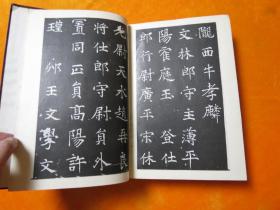 隴西牛孝麟
文林郎守主薄平
陽霍庭玉 登仕
郎行尉廣平宋休
尉天水趙再良
將仕郎守尉員外
置同正員高陽許
王文學文